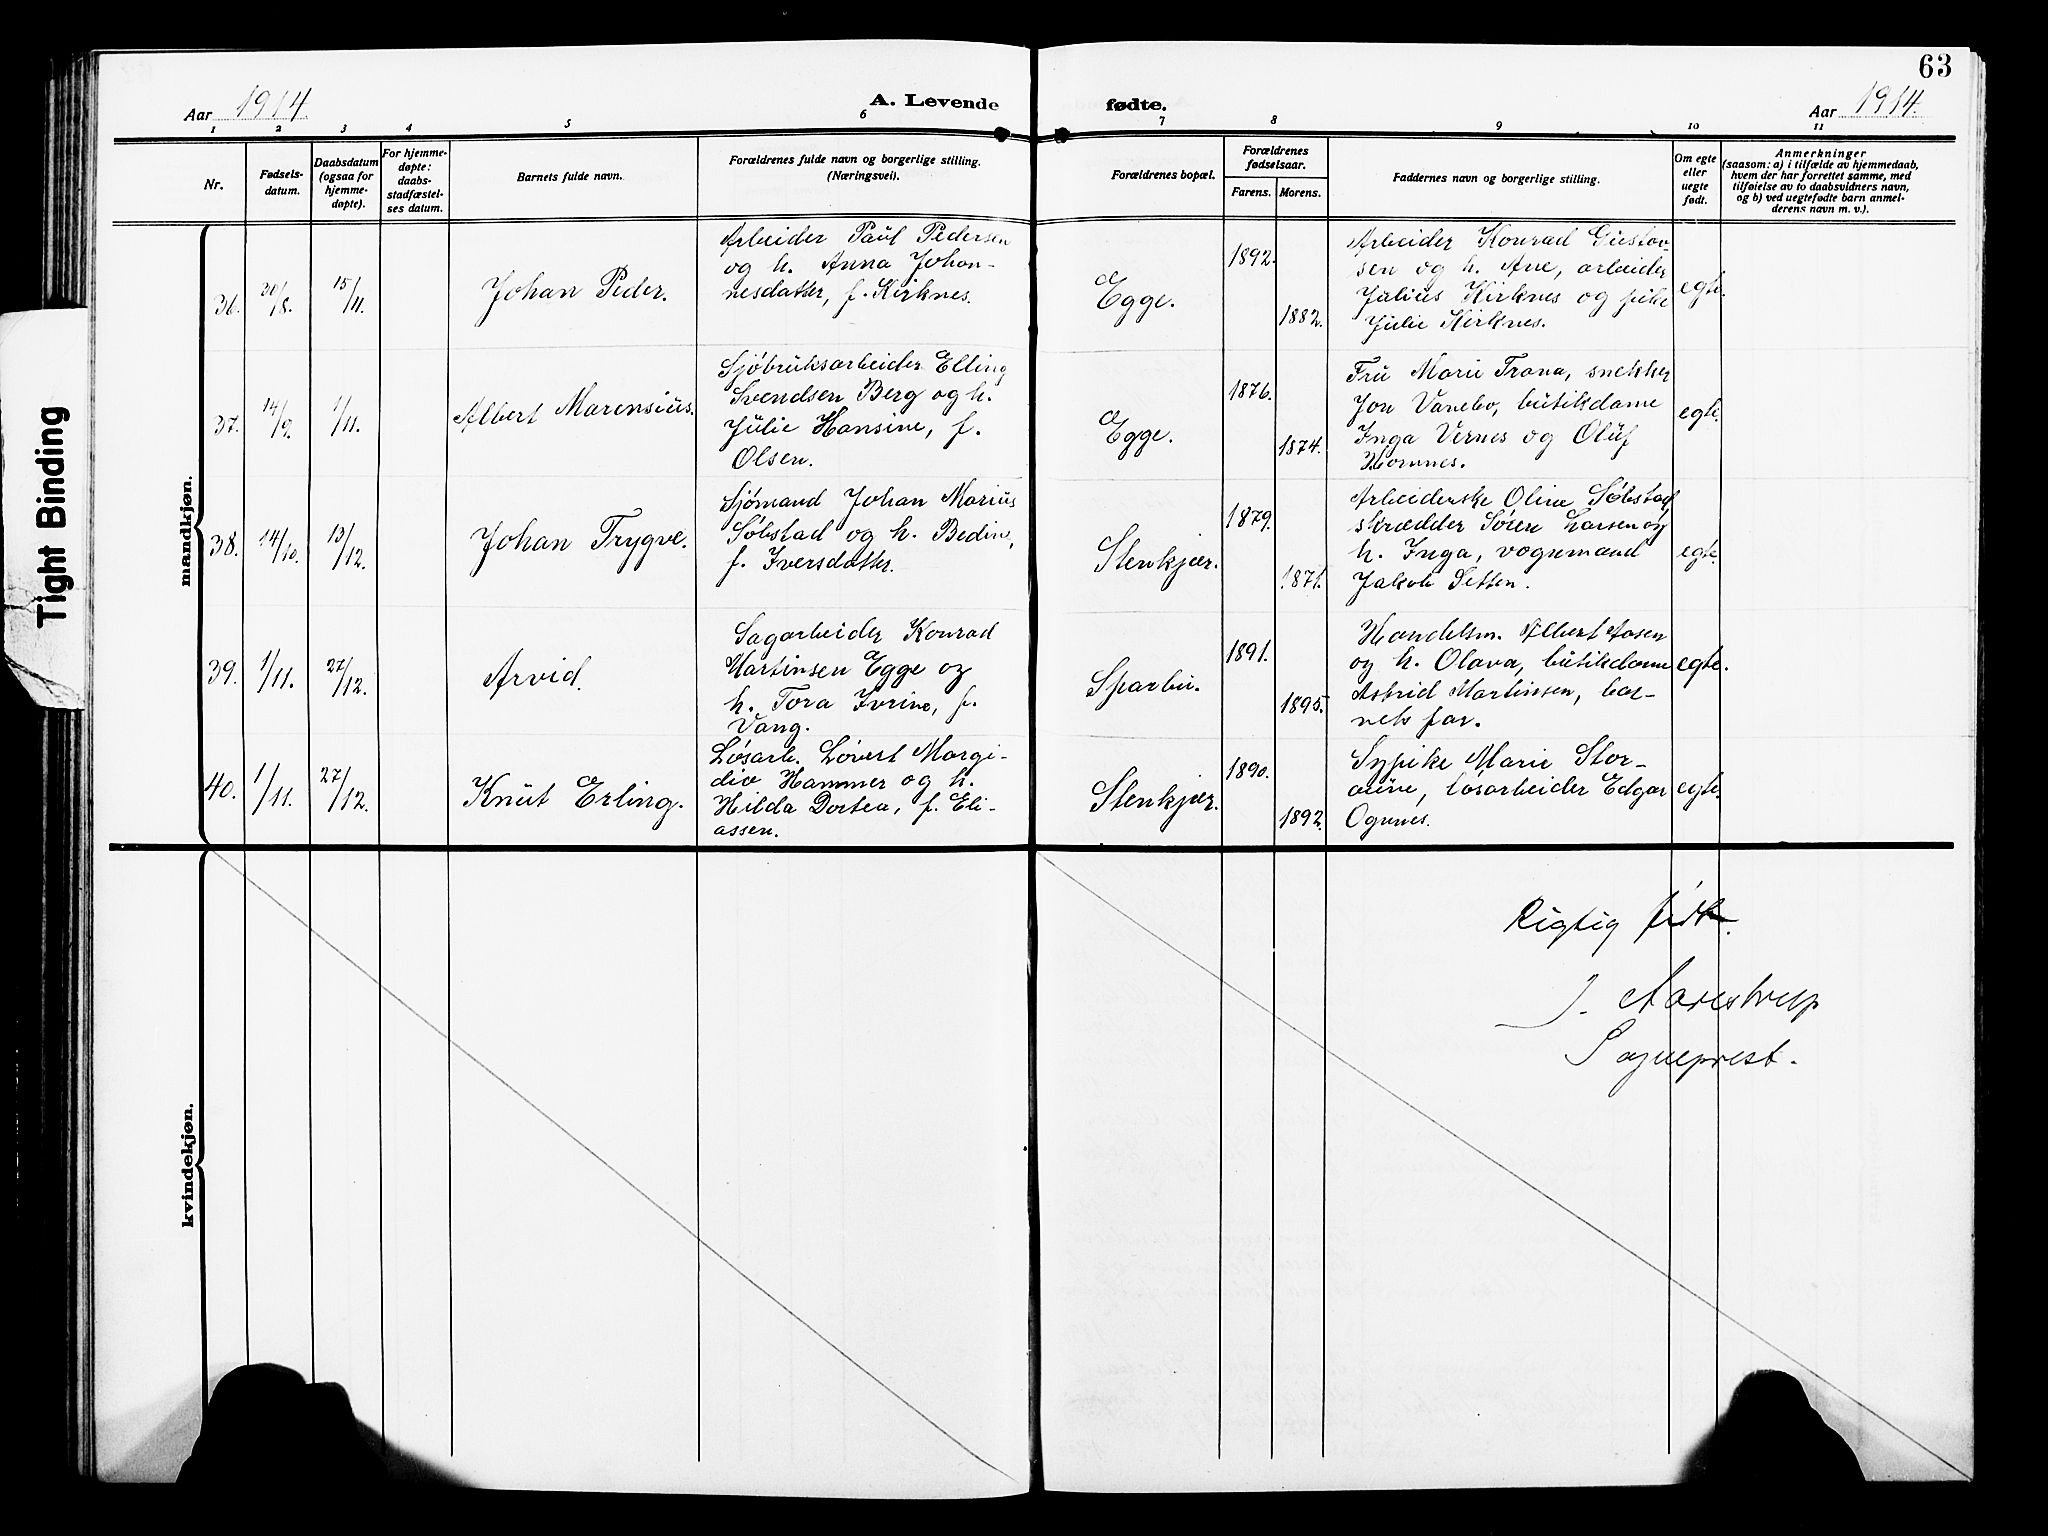 63
Aar 1914. A. Levende fødte. Aar 1914.
1 2 3 4 5 6 7 8 9 10 11
Nr.
Fødsels-
datum.
Daabsdatum
(ogsaa for
hjemme-
døpte).
For hjemme-
døpte:
daabs-
stadfæstel-
ses datum.
Barnets fulde navn.
Forældrenes fulde navn og borgerlige stilling.
(Næringsvei).
Forældrenes bopæl.
Forældrenes
fødselsaar.
Farens. Morens.
Faddernes navn og borgerlige stilling.
Om egte
eller
uegte
født.
Anmerkninger
(saasom: a) i tilfælde av hjemmedaab,
hvem der har forrettet samme, med
tilføielse av to daabsvidners navn,
og b) ved uegtefødte barn anmel-
derens navn m. v.).
mandkjøn.
36. 20/8. 15/11. Johan Peder.
Arbeider Paul Pedersen
og h. Anna Johan-
nesdatter, f. Kirknes.
Egge.
1892.
1882.
Arbeider Konrad Gustav-
sen og h. Ane, arbeider
Julius Kirknes og pike
Julie Kirknes.
egte.
37. 14/9. 1/11. Albert Marensius.
Sjøbruksarbeider Elling
Svendsen Berg og h.
Julie Hansine, f.
Olsen.
Egge.
1876.
1874.
Fru Marie Trana, snekker
Jon Vanebo, butikdame
Inga Vernes og Oluf
Homnes.
egte.
38. 14/10. 13/12. Johan Trygve.
Sjømand Johan Marius
Søbstad og h. Bedine,
f. Iversdatter.
Stenkjær.
1879.
1871.
Arbeiderske Oline Søbstad,
skrædder Sören Larsen og
h. Inga, vognmand
Jakob Setten.
egte.
39. 1/11. 27/12. Arvid.
Sagarbeider Konrad
Martinsen Egge og
h. Tora Ivrine, f.
Vang.
Sparbu.
1891.
1895.
Handelsm. Albert Aasen
og h. Olava, butikdame
Astrid Martinsen, bar-
nets far.
egte.
40. 1/11. 27/12. Knut Erling.
Løsarb. Lövert Margi-
dio Hammer og h.
Hilda Dortea, f. Eli-
assen.
Stenkjær.
1890.
1892.
Sypike Marie Stor-
aune, løsarbeider Edgar
Ognnes.
egte.
kvindekjøn.
Rigtig ført.
J. Aarestrup
Sogneprest.
Tight Binding